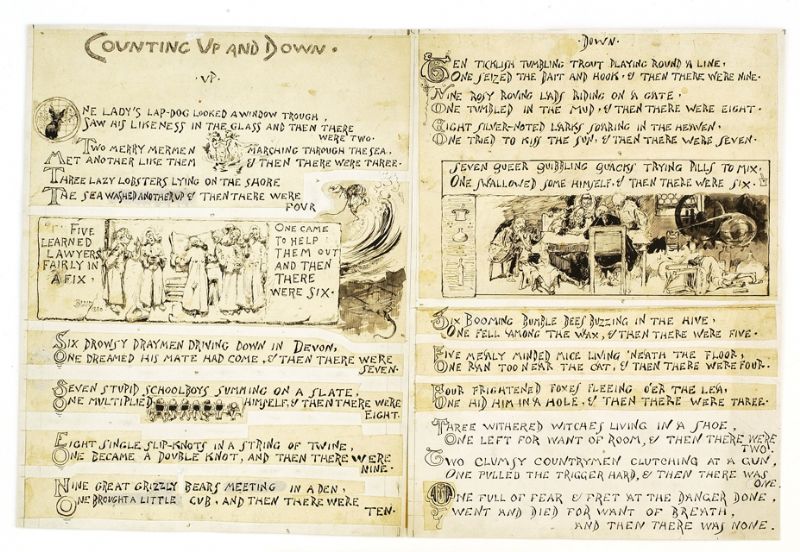 COUNTING UP AND DOWN.
UP.
ONE LADY'S LAP-DOG LOOKED A WINDOW TROUGH,
SAW HIS LIKENESS IN THE GLASS AND THEN THERE
WERE TWO.
TWO MERRY MERMEN MARCHING THROUGH THE SEA,
MET ANOTHER LIKE THEM & THEN THERE WERE THREE.
THREE LAZY LOBSTERS LYING ON THE SHORE
THE SEA WASHED ANOTHER UP & THEN THERE WERE
FOUR
FIVE
LEARNED
LAWYERS
FAIRLY IN
A FIX.
ONE CAME
TO HELP
THEM OUT
AND THEN
THERE
WERE SIX.
SIX DROWSY DRAYMEN DRIVING DOWN IN DEVON,
ONE DREAMED HIS MATE HAD COME, & THEN THERE WERE
SEVEN.
SEVEN STUPID SCHOOLBOYS SUMMING ON A SLATE,
ONE MULTIPLIED HIMSELF, & THEN THERE WERE
EIGHT.
EIGHT SINGLE SLIP-KNOTS IN A STRING OF TWINE,
ONE BECAME A DOUBLE KNOT, AND THEN THERE WERE
NINE.
NINE GREAT GRIZZLY BEARS MEETING IN A DEN,
ONE BROUGHT A LITTLE CUB, AND THEN THERE WERE
TEN.
DOWN.
TEN TICKLISH TUMBLING TROUT PLAYING ROUND A LINE,
ONE SEIZED THE BAIT AND HOOK, & THEN THERE WERE NINE.
NINE ROSY ROVING LADS RIDING ON A GATE,
ONE TUMBLED IN THE MUD, & THEN THERE WERE EIGHT.
EIGHT SILVER-NOTED LARKS SOARING IN THE HEAVEN,
ONE TRIED TO KISS THE SUN, & THEN THERE WERE SEVEN.
SEVEN QUEER QUIBBLING QUACKS TRYING PILLS TO MIX,
ONE SWALLOWED SOME HIMSELF, & THEN THERE WERE SIX.
SIX BOOMING BUMBLE BEES BUZZING IN THE HIVE,
ONE FELL 'AMONG THE WAX, & THEN THERE WERE FIVE.
FIVE MEALY MINDED MICE LIVING 'NEATH THE FLOOR,
ONE RAN TOO NEAR THE CAT, & THEN THERE WERE FOUR.
FOUR FRIGHTENED FOXES FLEEING O'ER THE LEA,
ONE HID HIM IN A HOLE, & THEN THERE WERE THREE.
THREE WITHERED WITCHES LIVING IN A SHOE,
ONE LEFT FOR WANT OF ROOM, & THEN THERE WERE
TWO.
TWO CLUMSY COUNTRYMEN CLUTCHING AT A GUN,
ONE PULLED THE TRIGGER HARD, & THEN THERE WAS
ONE.
ONE FULL OF FEAR & FRET AT THE DANGER DONE,
WENT AND DIED FOR WANT OF BREATH,
AND THEN THERE WAS NONE.